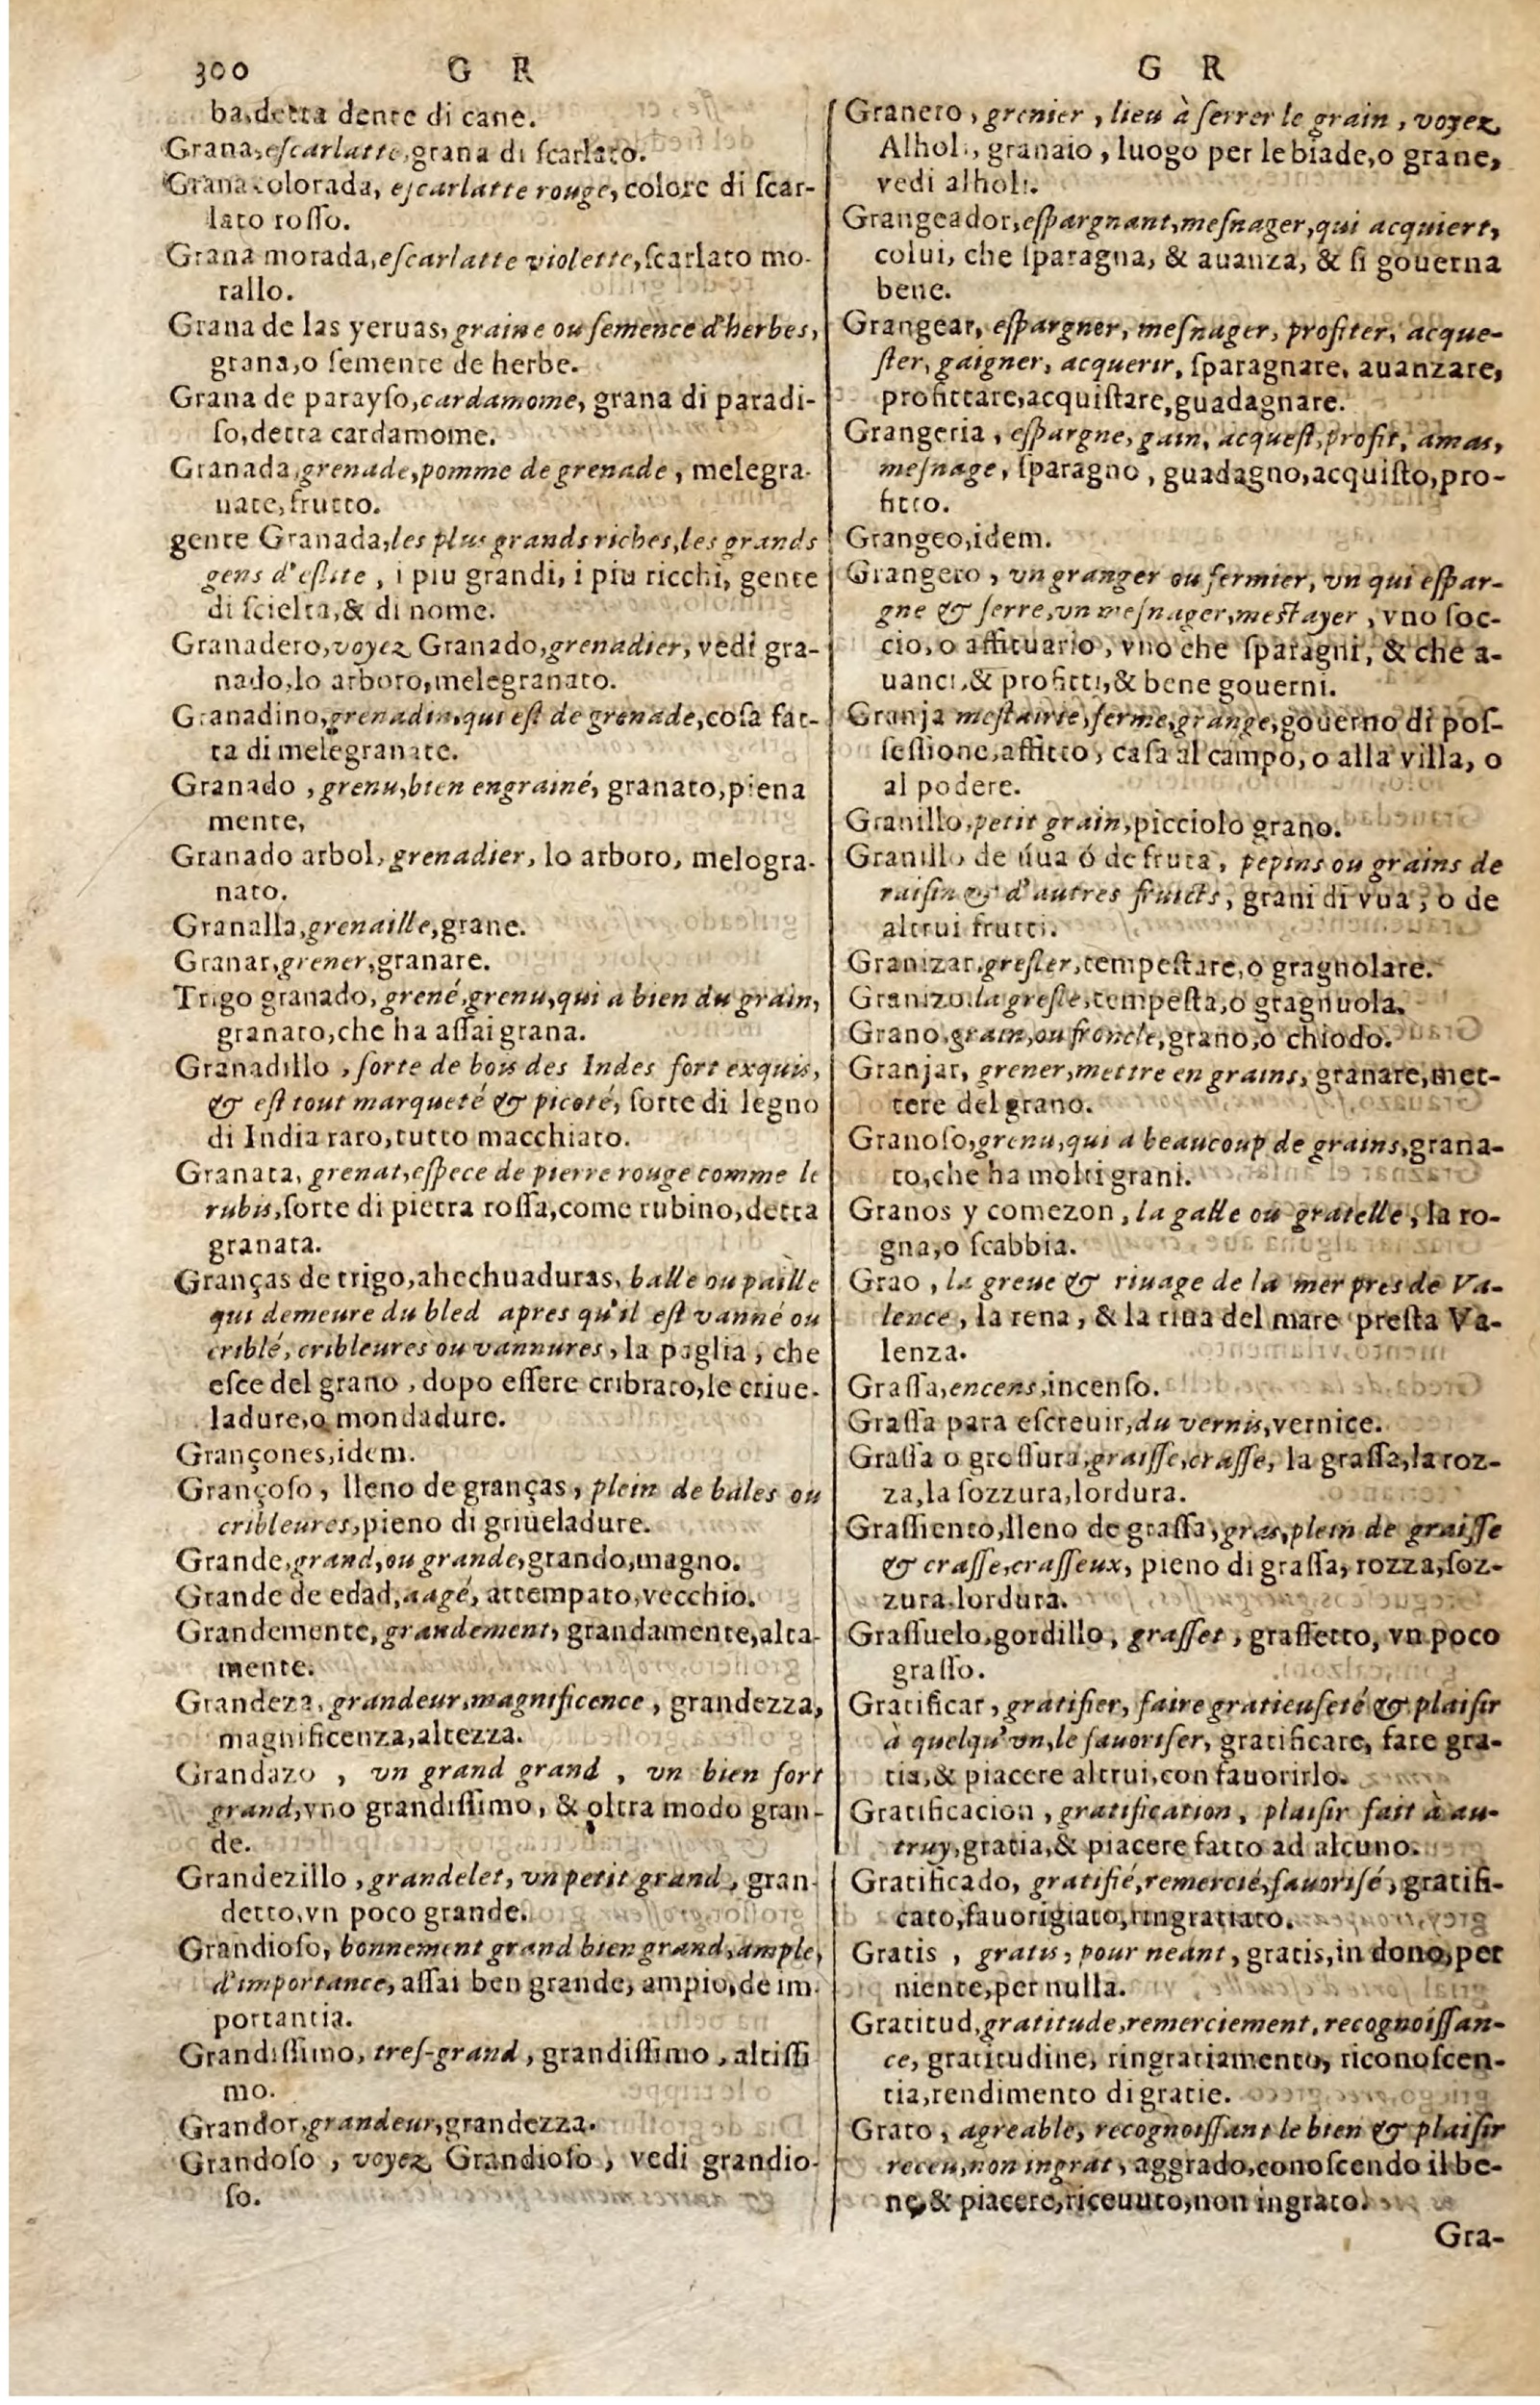 300 G R
ba,detta dente di cane.
Grana,eſcarlatte,grana di ſcarlato.
Grana colorada, eſcarlatte rouge, colore di ſcar-
lato roſſo.
Grana morada,eſcarlatte violette,ſcarlato mo-
rallo.
Grana de las yeruas, graine ou ſemence d'herbes,
grana,o ſemente de herbe.
Grana de parayſo,cardamome, grana di paradi-
ſo,detta cardamome.
Granada,grenade,pomme de grenade, melegra-
nate,frutto.
gente Granada,les plus grands riches,les grands
gens d'eſlite, i piu grandi, i piu ricchi, gente
di ſcielta,& di nome.
Granadero,voyez Granado,grenadier, vedi gra-
nado,lo arboro,melegranato.
Granadino,grenadin,qui eſt de grenade,coſa fat-
ta di melegranate.
Granado ,grenu,bien engrainé, granato,piena
mente,
Granado arbol, grenadier, lo arboro, melogra-
nato.
Granalla,grenaille,grane.
Granar,grener,granare.
Trigo granado, grené,grenu,qui a bien du grain,
granato,che ha aſſai grana.
Granadillo ,ſorte de bois des Indes fort exquis,
& eſt tout marqueté & picoté, ſorte di legno
di India raro,tutto macchiato.
Granata, grenat,eſpece de pierre rouge comme le
rubis,ſorte di pietra roſſa,come rubino,detta
granata.
Granças de trigo,ahechuaduras, balle ou paille
qui demeure du bled apres qu'il eſt vanné ou
criblé, cribleures ou vannures, la paglia, che
eſce del grano , dopo eſſere cribrato,le criue-
ladure,o mondadure.
Grançones,idem.
Grançoſo, lleno de granças, plein de bales ou
cribleures,pieno di griueladure.
Grande,grand,ou grande,grando,magno.
Grande de edad,aagé, attempato,vecchio.
Grandemente, grandement, grandamente,alta-
mente.
Grandeza, grandeur,magnificence, grandezza,
magnificenza,altezza.
Grandazo , vn grand grand , vn bien fort
grand,vno grandiſſimo, & oltra modo gran-
de.
Grandezillo ,grandelet, vn petit grand, gran-
detto,vn poco grande.
Grandioſo, bonnement grand bien grand,ample,
d'importance, aſſai ben grande, ampio,de im-
portantia.
Grandiſſimo, treſ-grand , grandiſſimo , altiſſi
mo.
Grandor,grandeur,grandezza.
Grandoſo , voyez Grandioſo, vedi grandio-
ſo.
G R
Granero, grenier , lieu à ſerrer le grain , voyez
Alholi, granaio, luogo per le biade,o grane,
vedi alholi.
Grangeador,eſpargnant,meſnager,qui acquiert,
colui, che ſparagna, & auanza, & ſi gouerna
bene.
Grangear, eſpargner, meſnager, profiter, acque-
ſter, gaigner, acquerir, ſparagnare, auanzare,
profittare,acquiſtare,guadagnare.
Grangeria , eſpargne, gain, acqueſt,profit, amas,
meſnage, ſparagno, guadagno,acquiſto,pro-
fitto.
Grangeo,idem.
Grangero, vn granger ou fermier, vn qui eſpar-
gne & ſerre,vn meſnager,meſtayer, vno ſoc-
cio, o affituario, vno che ſparagni, & che a-
uanci,& profitti,& bene gouerni.
Granja meſtairie,ferme,grange,gouerno di poſ-
ſeſſione,affitto, caſa al campo, o alla villa, o
al podere.
Granillo,petit grain,picciolo grano.
Granillo de úua ó de fruta, pepins ou grains de
raiſin & d'autres fruicts, grani di vua, o de
altrui frutti.
Granizar,greſler,tempeſtare,o gragnolare.
Granizo,la greſle,tempeſta,o gragnuola.
Grano,grain,ou froncle,grano,o chiodo.
Granjar, grener,mettre en grains, granare,met-
tere del grano.
Granoſo,grenu,qui a beaucoup de grains,grana-
to,che ha molti grani.
Granos y comezon, la galle ou gratelle, la ro-
gna,o ſcabbia.
Grao , la greue & riuage de la mer pres de Va-
lence, la rena, & la riua del mare preſta Va-
lenza.
Graſſa,encens,incenſo.
Graſſa para eſcreuir,du vernis,vernice.
Graſſa o groſſura,graiſſe,craſſe, la graſſa,la roz-
za,la ſozzura,lordura.
Graſſiento,lleno de graſſa,gras,plein de graiſſe
& craſſe,craſſeux, pieno di graſſa, rozza,ſoz-
zura,lordura.
Graſſuelo,gordillo, graſſet, graſſetto, vn poco
graſſo.
Gratificar, gratifier, faire gratieuſeté & plaiſir
à quelqu'vn,le fauoriſer, gratificare, fare gra-
tia,& piacere altrui,con fauorirlo.
Gratificacion, gratification, plaiſir fait à au-
truy,gratia,& piacere fatto ad alcuno.
Gratificado, gratifié,remercié,fauoriſé, gratifi-
cato,fauorigiato,ringratiato.
Gratis , gratis, pour neant, gratis,in dono,per
niente,per nulla.
Gratitud,gratitude,remerciement,recognoiſſan-
ce, gratitudine, ringratiamento, riconoſcen-
tia,rendimento di gratie.
Grato, agreable, recognoiſſant le bien & plaiſir
receu,non ingrat, aggrado,conoſcendo il be-
ne,& piacere,riceuuto,non ingrato.
Gra-